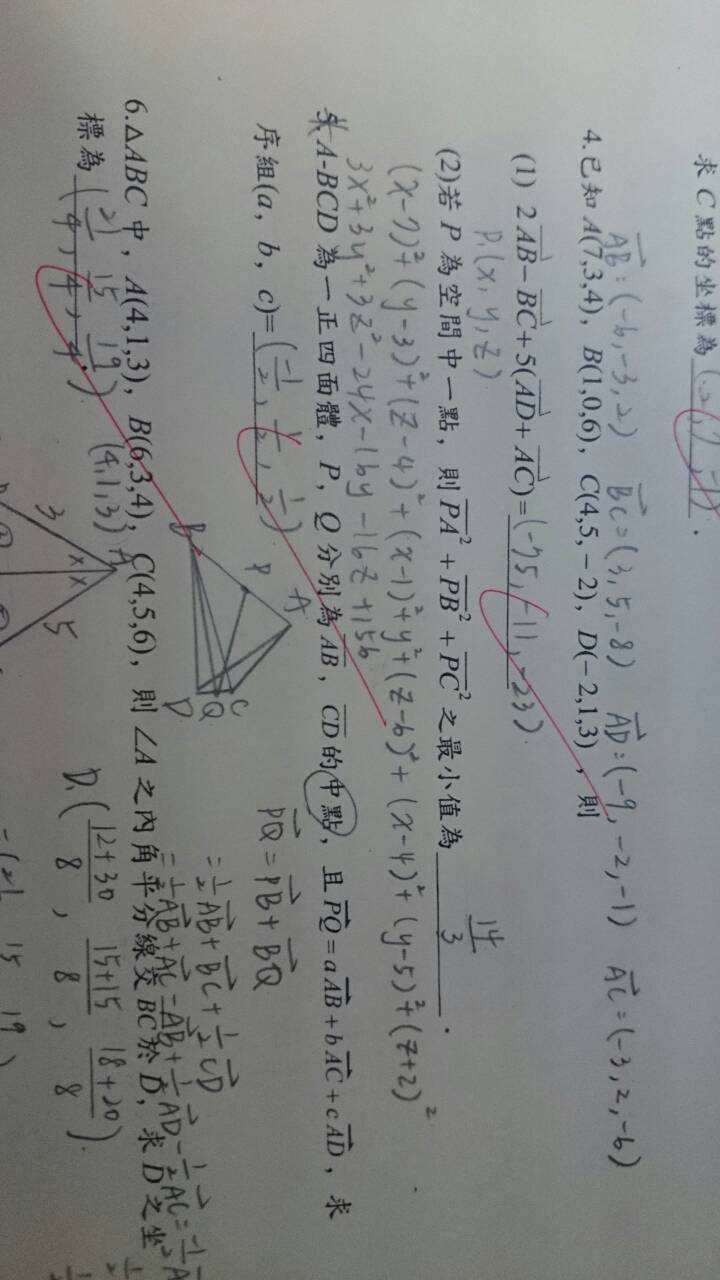 求 C 點的坐標為
4.已知 A(7,3,4), B(1,0,6), C(4,5,-2), D(-2,1,3), 則
AB=(-6,-3,2) BC=(3,5,-8) AD=(-9,-2,-1) AC=(-3,2,-6)
(1) 2AB-BC+5(AD+AC)=(-75,-11,-23).
P(x,y,z)
(2)若 P 為空間中一點, 則 PA²+PB²+PC² 之最小值為 14/3.
(x-7)²+(y-3)²+(z-4)²+(x-1)²+y²+(z-6)²+(x-4)²+(y-5)²+(z+2)²
3x²+3y²+3z²-24x-16y-16z+156
A-BCD 為一正四面體, P, Q 分別為 AB, CD 的中點, 且 PQ=aAB+bAC+cAD, 求
序組(a, b, c)=(-1/2, 1/2, 1/2)
A
P
B
C
Q
D
PQ=PB+BQ
=1/2AB+BC+1/2CD
=1/2AB+AC-AB+1/2AD-1/2AC=-1/2A
6.△ABC 中, A(4,1,3), B(6,3,4), C(4,5,6), 則∠A 之內角平分線交 BC 於 D, 求 D 之坐
標為(21/4, 15/4, 19/4)
(4,1,3) A
3
5
x x
D(12+30/8, 15+15/8, 18+20/8).